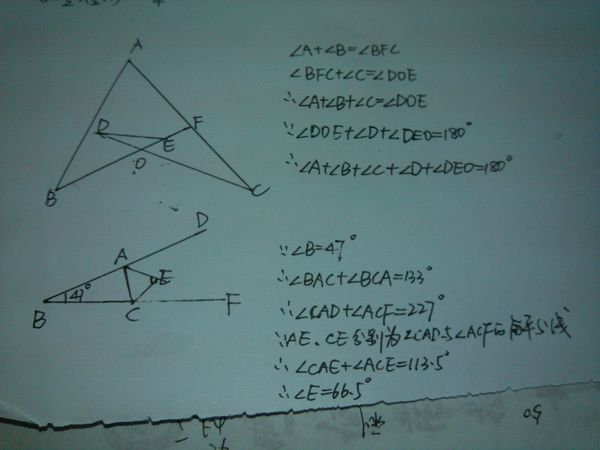 A
D
F
E
O
B
C
∠A+∠B=∠BFC
∠BFC+∠C=∠DOE
∴∠A+∠B+∠C=∠DOE
∵∠DOE+∠D+∠DEO=180°
∴∠A+∠B+∠C+∠D+∠DEO=180°
D
A
E
47°
B
C
F
∵∠B=47°
∴∠BAC+∠BCA=133°
∴∠CAD+∠ACF=227°
∵AE、CE分别为∠CAD与∠ACF的角平分线
∴∠CAE+∠ACE=113.5°
∴∠E=66.5°
50